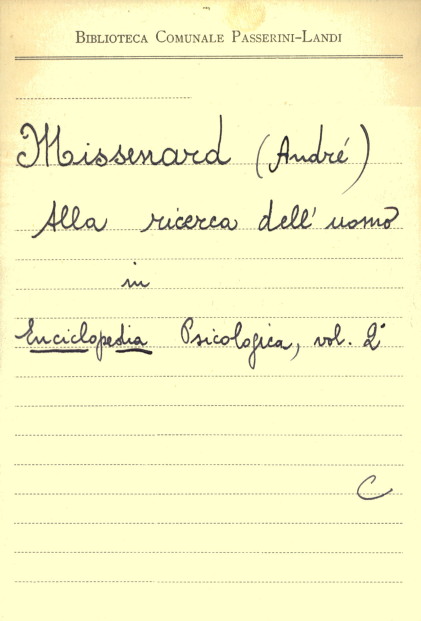 BIBLIOTECA COMUNALE PASSERINI-LANDI
Missenard (André)
Alla ricerca dell'uomo
in
Enciclopedia Psicologica, vol. 2°
C